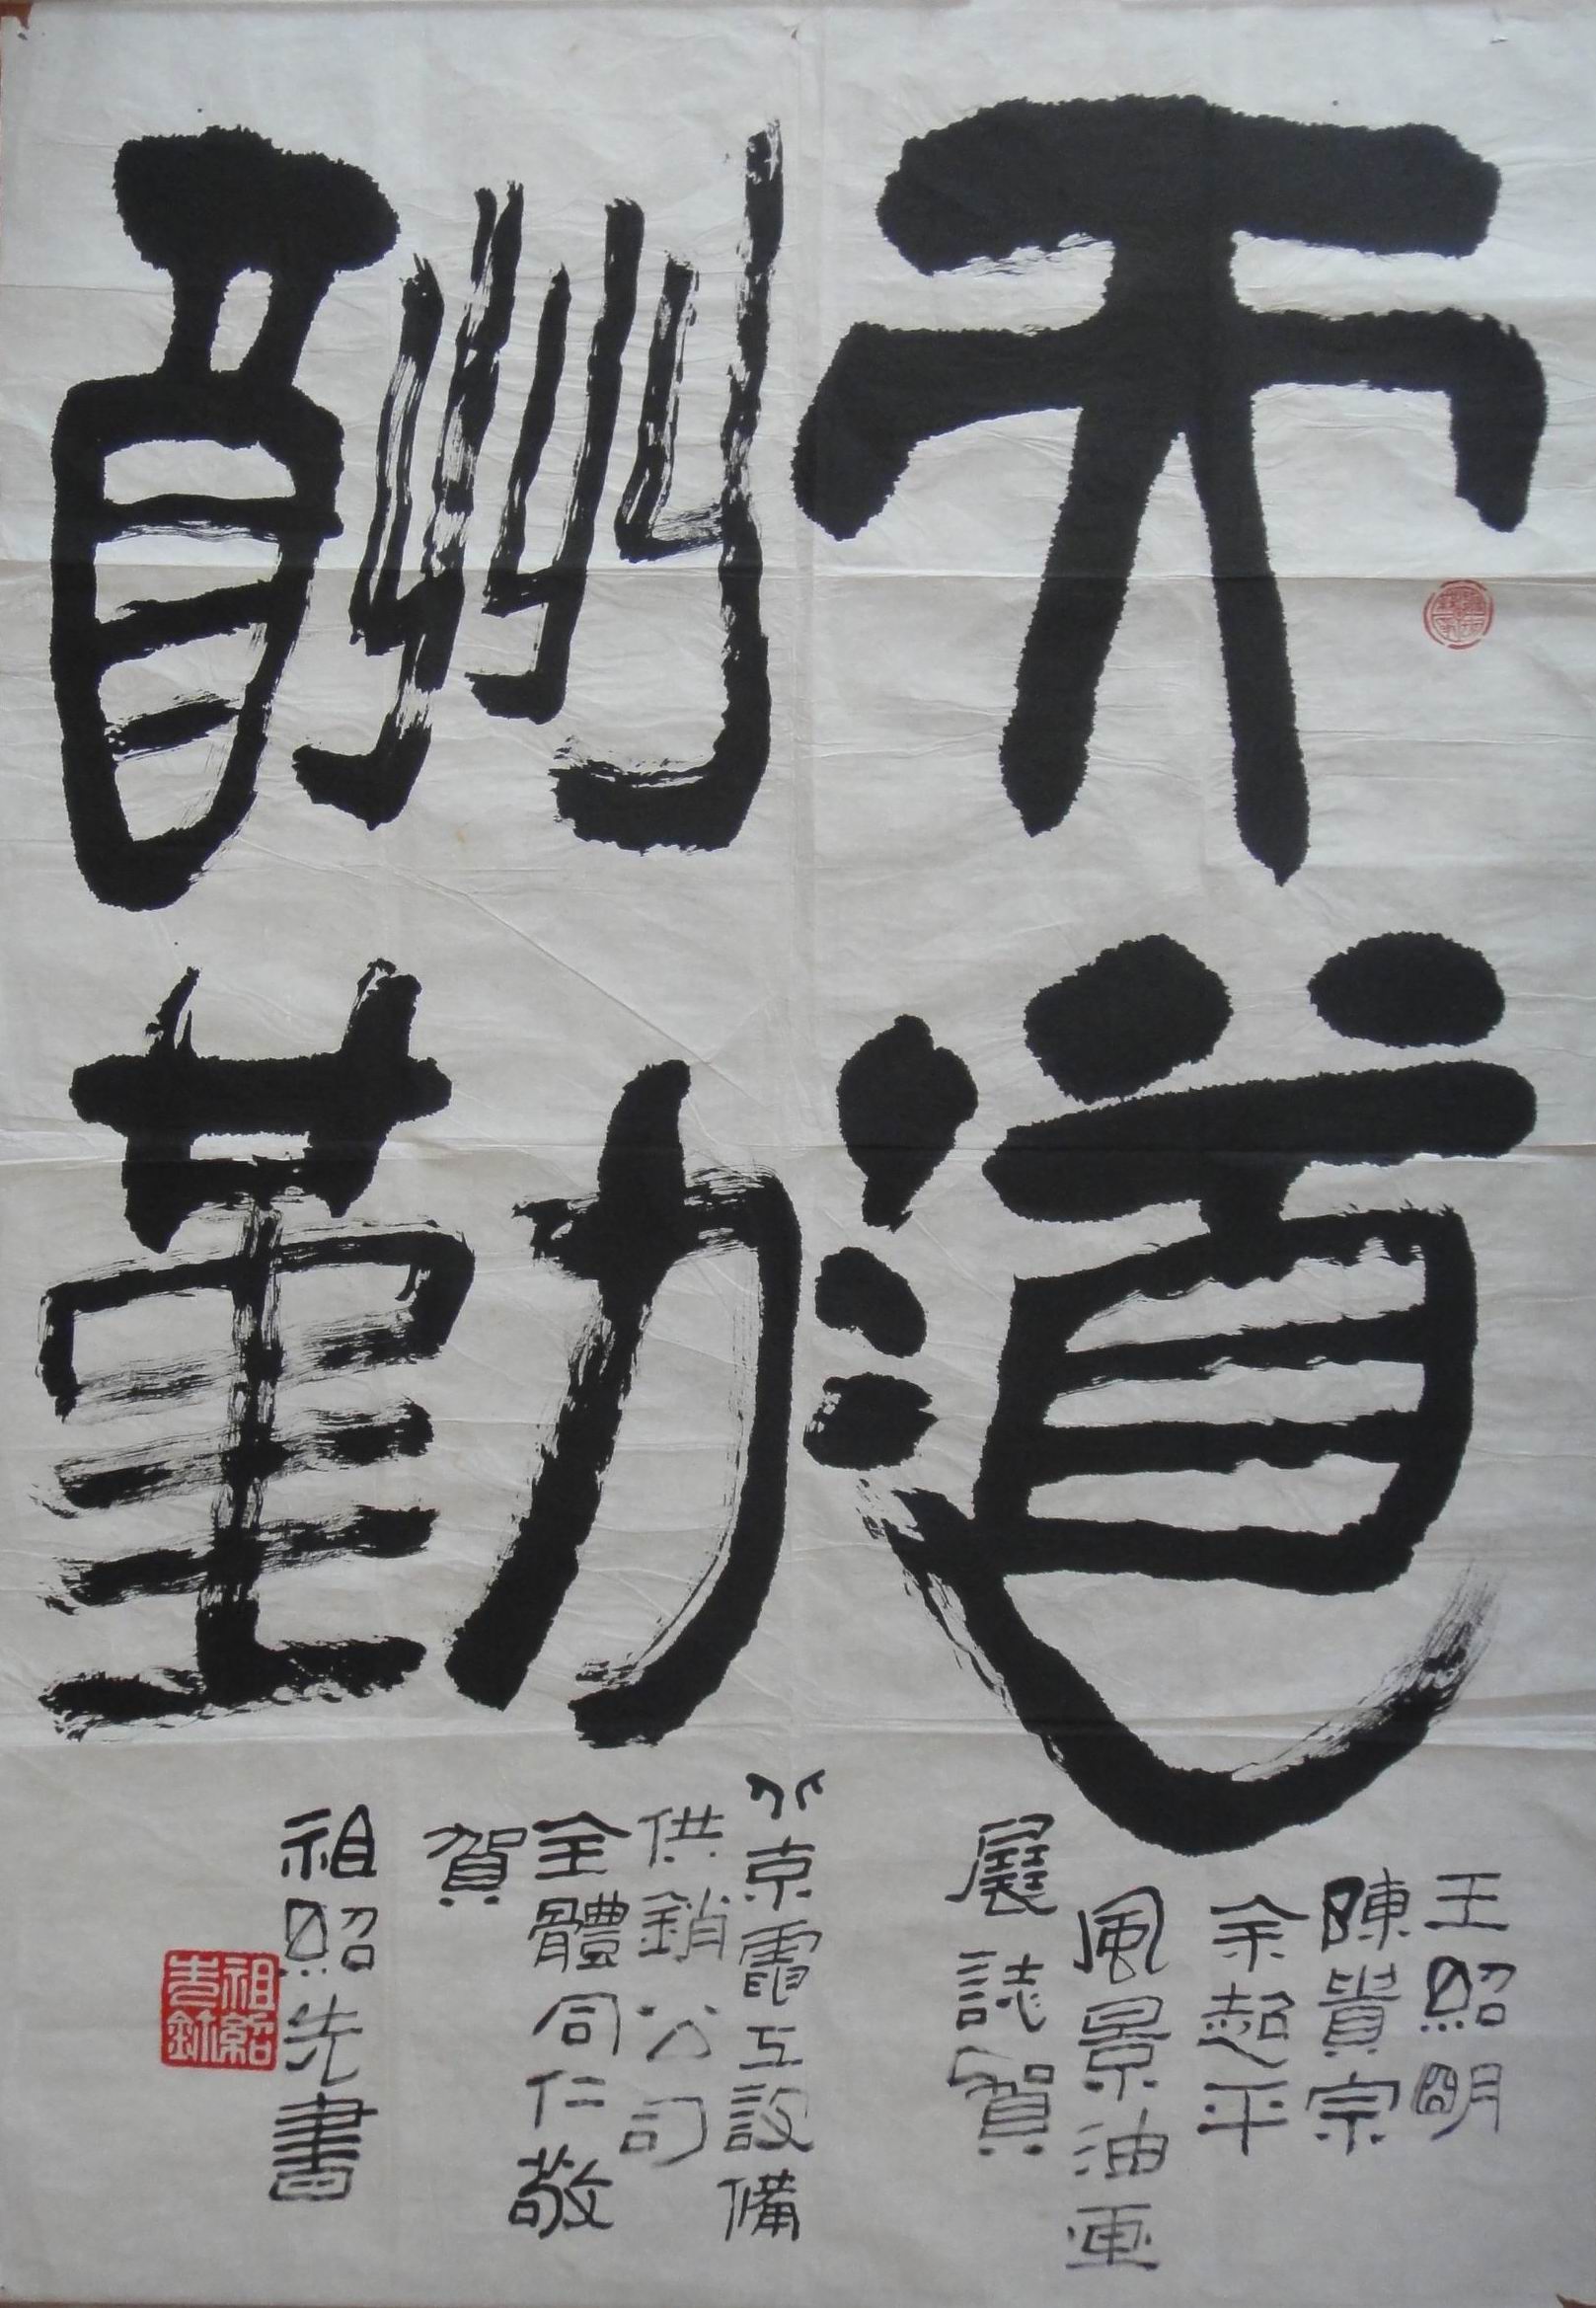 天道
酬勤
王照明
陳貴宗
余超平
風景油画
展誌賀
北京電工設備
供銷公司
全體同仁敬
賀
祖照先書